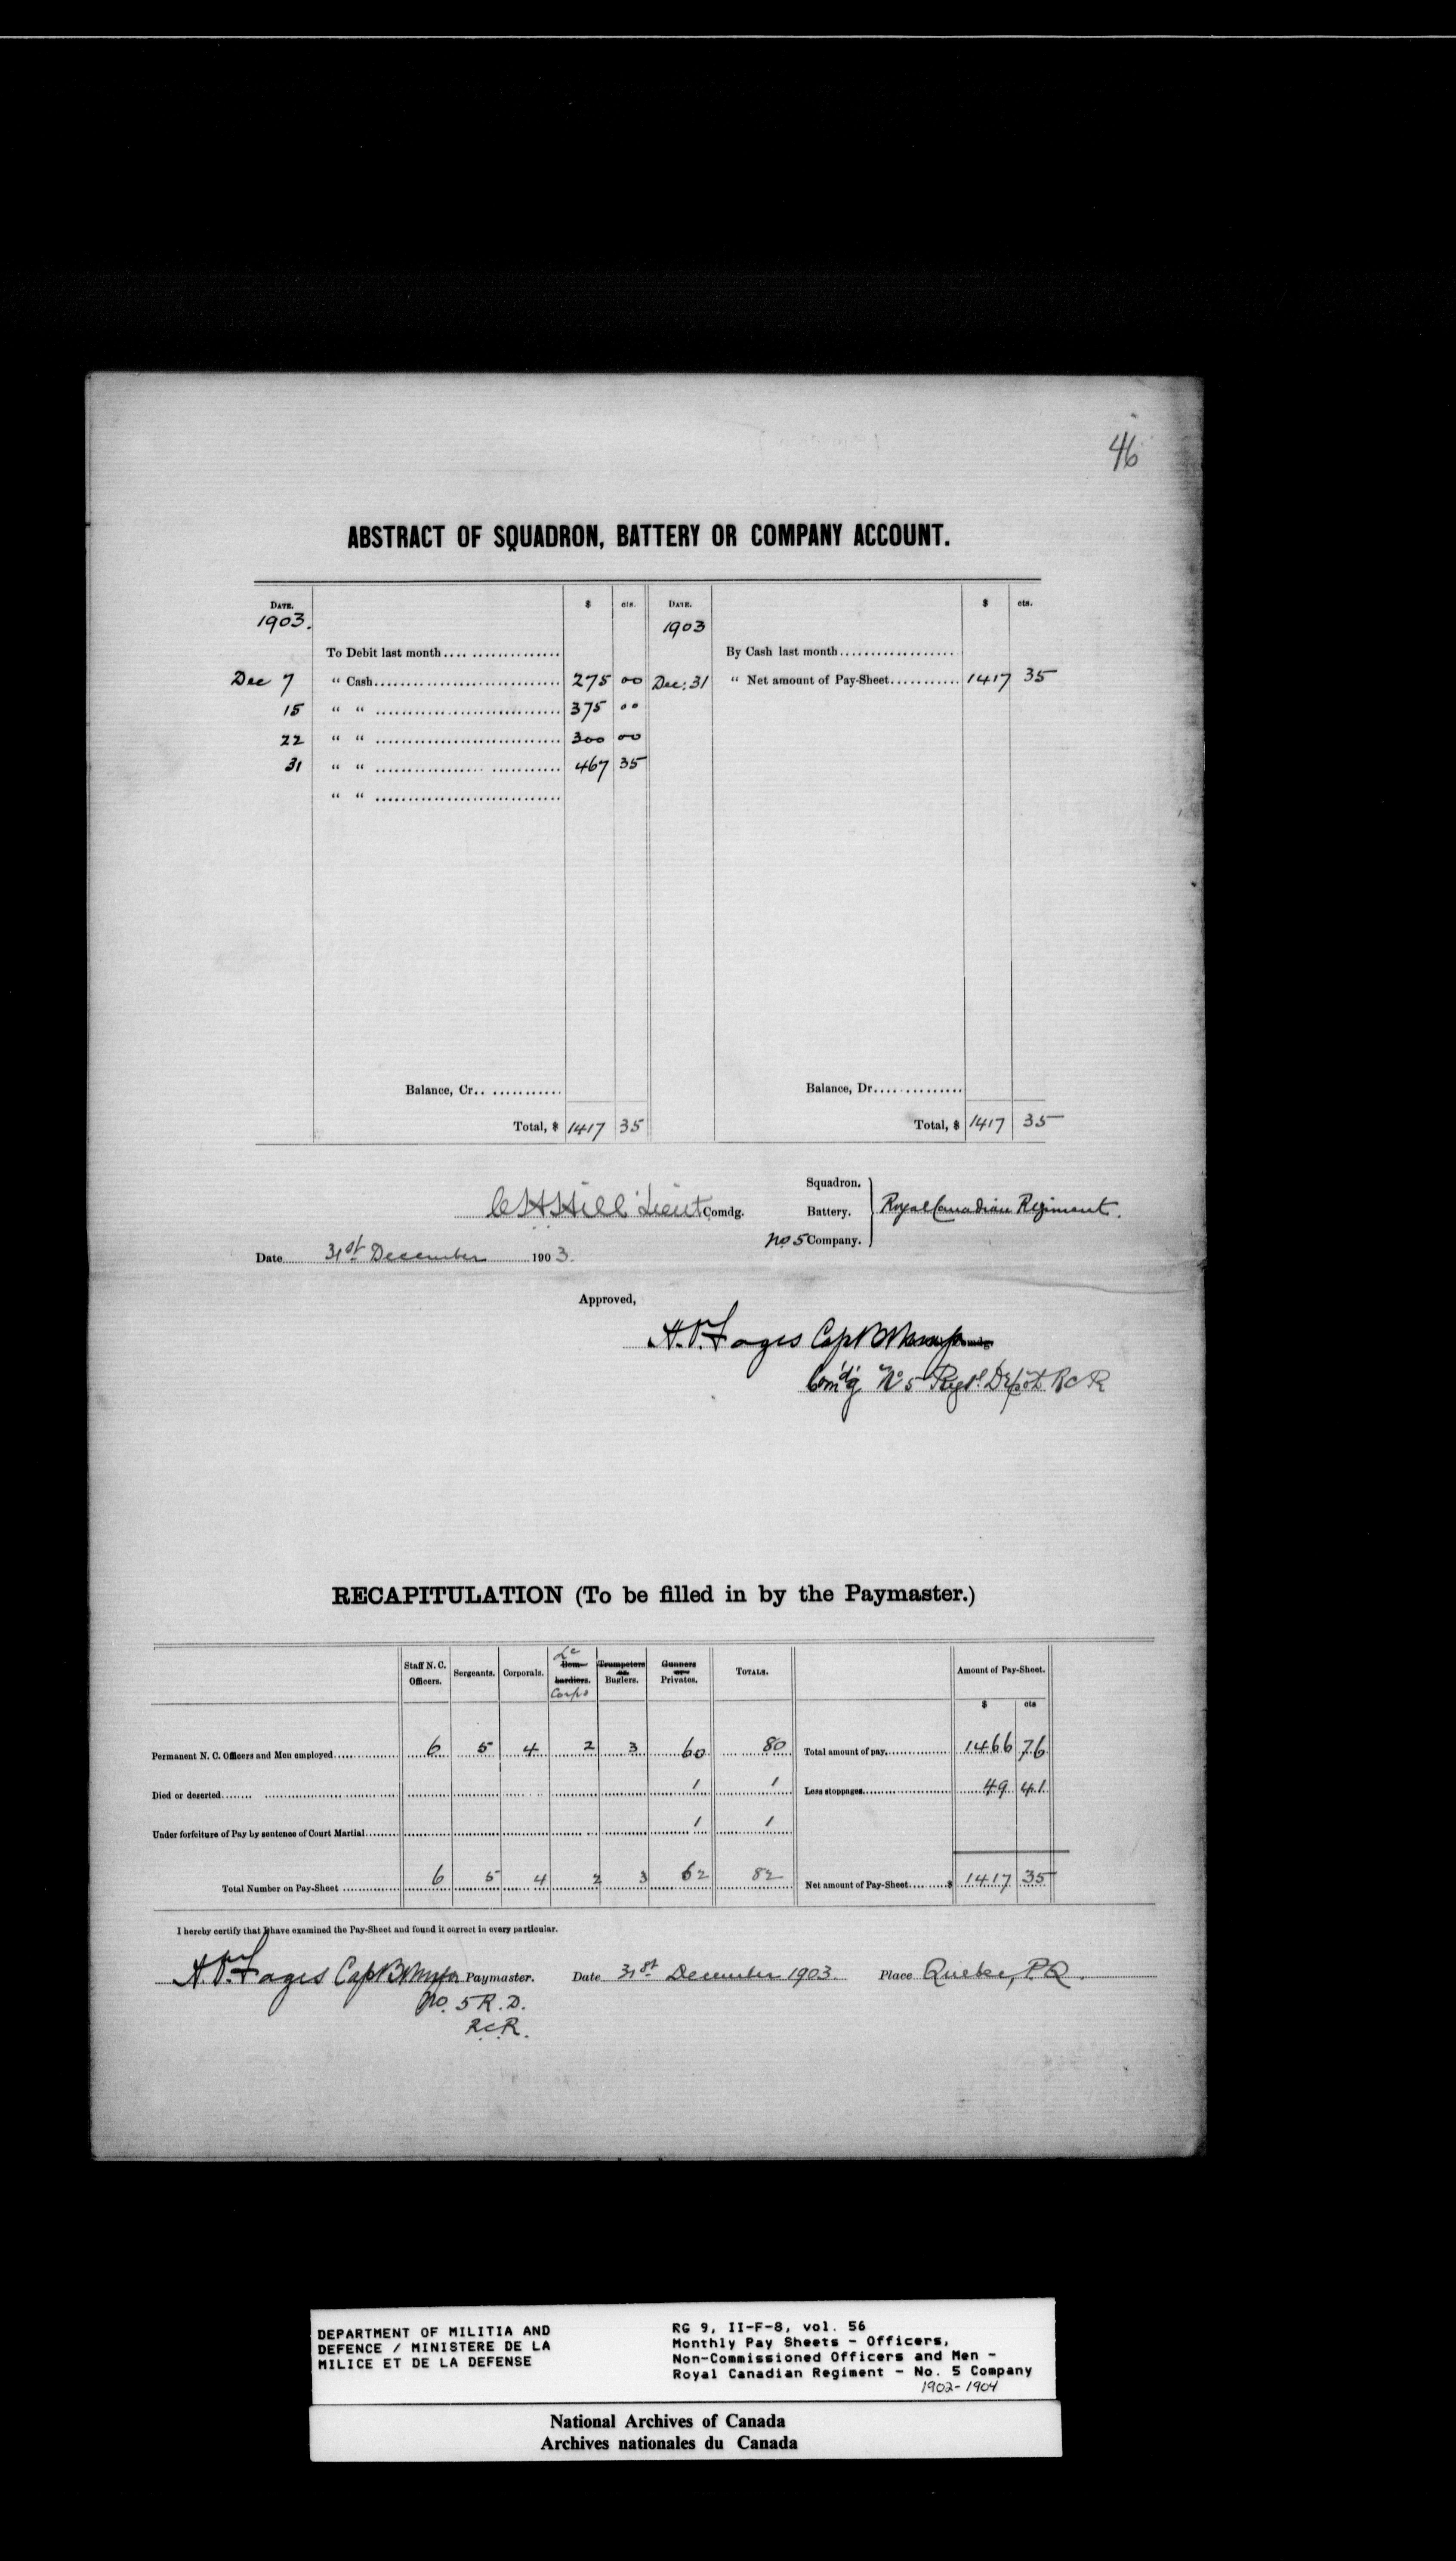 46
ABSTRACT OF SQUADRON, BATTERY OR COMPANY ACCOUNT.
DATE. $ cts. DATE. $ cts.
1903. 1903
To Debit last month By Cash last month
Dec 7 " Cash 275 00 Dec: 31 " Net amount of Pay-Sheet 1417 35
15 " " 375 00
22 " " 300 00
31 " " 467 35
" "
Balance, Cr. Balance, Dr.
Total, $ 1417 35 Total, $ 1417 35
Squadron.
C H Hill Lieut Comdg. Battery. Royal Canadian Regiment.
No 5 Company.
Date 31st December 1903.
Approved,
Fages Capt
Com'd'g No 5 Reg'l Depôt R C R
RECAPITULATION (To be filled in by the Paymaster.)
Staff N. C. Officers. Sergeants. Corporals. Lc Bombardiers. Corps Trumpeters or Buglers. Gunners or Privates. TOTALS. Amount of Pay-Sheet.
$ cts
Permanent N. C. Officers and Men employed 6 5 4 2 3 60 80 Total amount of pay 1466 76
Died or deserted 1 1 Less stoppages 49 41
Under forfeiture of Pay by sentence of Court Martial 1 1
Total Number on Pay-Sheet 6 5 4 2 3 62 82 Net amount of Pay-Sheet $ 1417 35
I hereby certify that I have examined the Pay-Sheet and found it correct in every particular.
Fages Capt Paymaster. Date 31st December 1903. Place Quebec, P.Q.
No. 5 R. D.
R.C.R.
DEPARTMENT OF MILITIA AND
DEFENCE / MINISTERE DE LA
MILICE ET DE LA DEFENSE
RG 9, II-F-8, vol. 56
Monthly Pay Sheets - Officers,
Non-Commissioned Officers and Men -
Royal Canadian Regiment - No. 5 Company
1902-1904
National Archives of Canada
Archives nationales du Canada